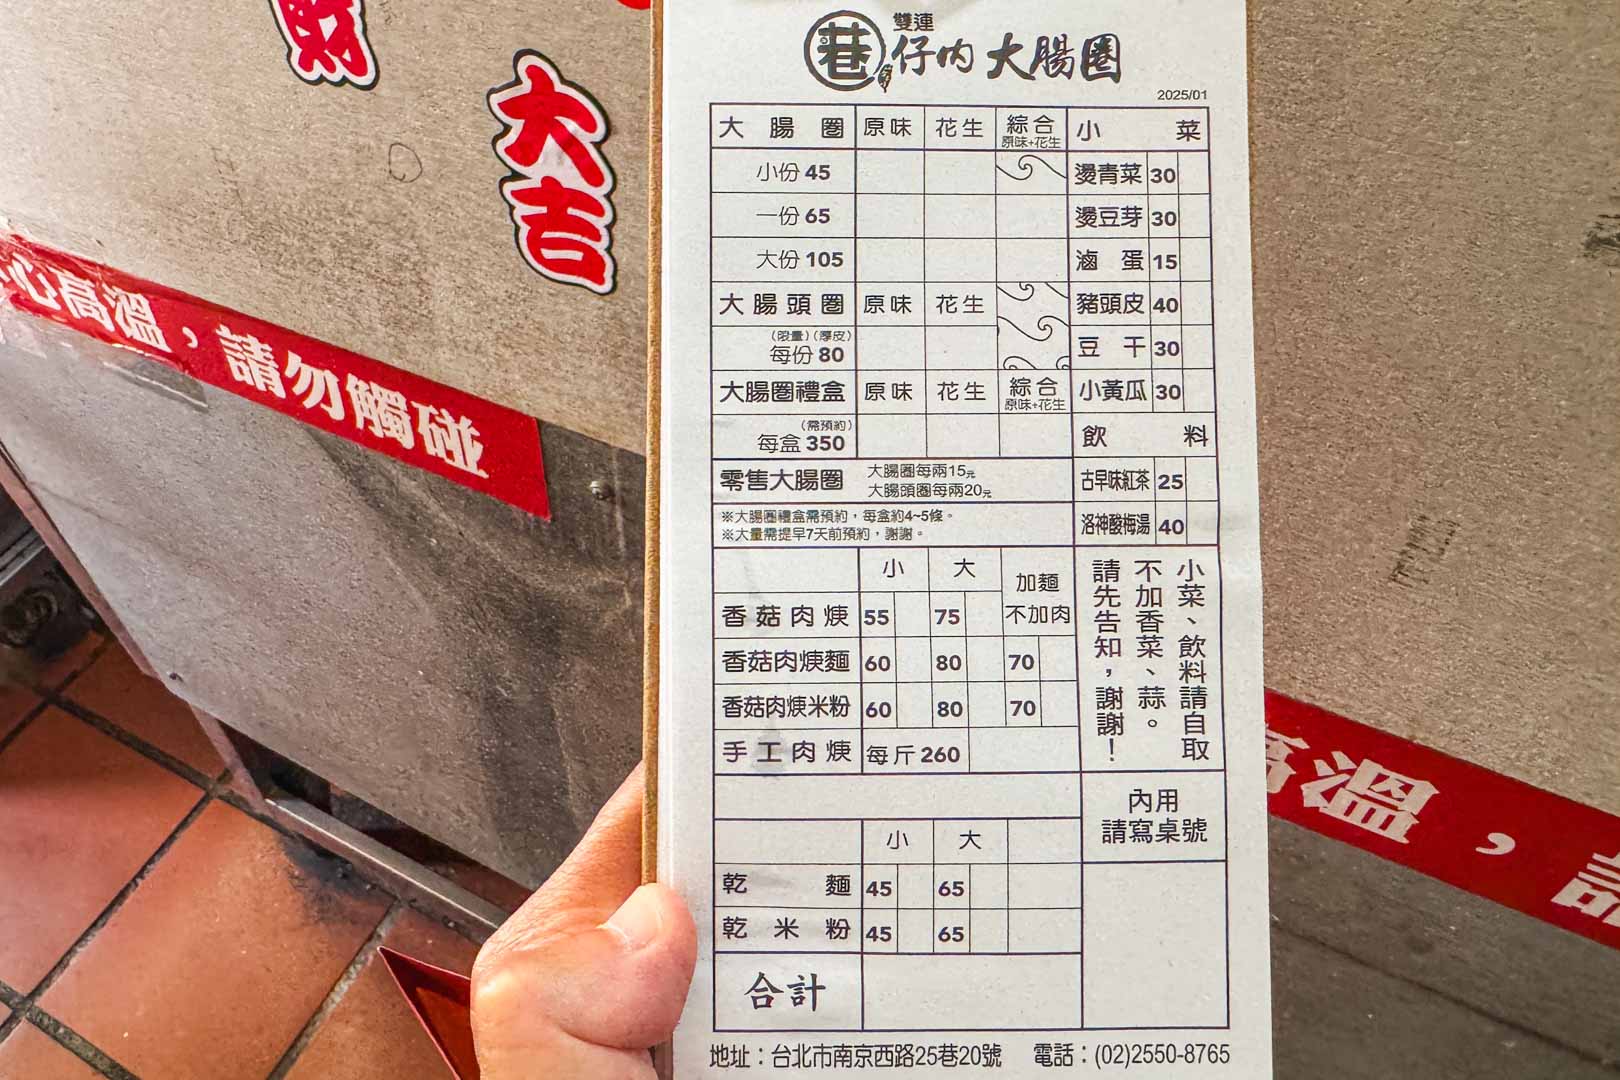 財
大吉
心高溫，請勿觸碰
雙連
巷仔內大腸圈
2025/01
大腸圈 原味 花生 綜合 原味+花生
小份 45
一份 65
大份 105
大腸頭圈 原味 花生
(限量)(厚皮)
每份 80
大腸圈禮盒 原味 花生 綜合 原味+花生
(需預約)
每盒 350
零售大腸圈 大腸圈每兩15元
大腸頭圈每兩20元
※大腸圈禮盒需預約，每盒約4~5條。
※大量需提早7天前預約，謝謝。
小菜
燙青菜 30
燙豆芽 30
滷蛋 15
豬頭皮 40
豆干 30
小黃瓜 30
飲料
古早味紅茶 25
洛神酸梅湯 40
小 大 加麵不加肉
香菇肉焿 55 75
香菇肉焿麵 60 80 70
香菇肉焿米粉 60 80 70
手工肉焿 每斤 260
小菜、飲料請自取
不加香菜、蒜。
請先告知，謝謝！
內用
請寫桌號
小 大
乾麵 45 65
乾米粉 45 65
合計
地址：台北市南京西路25巷20號 電話：(02)2550-8765
高溫，請